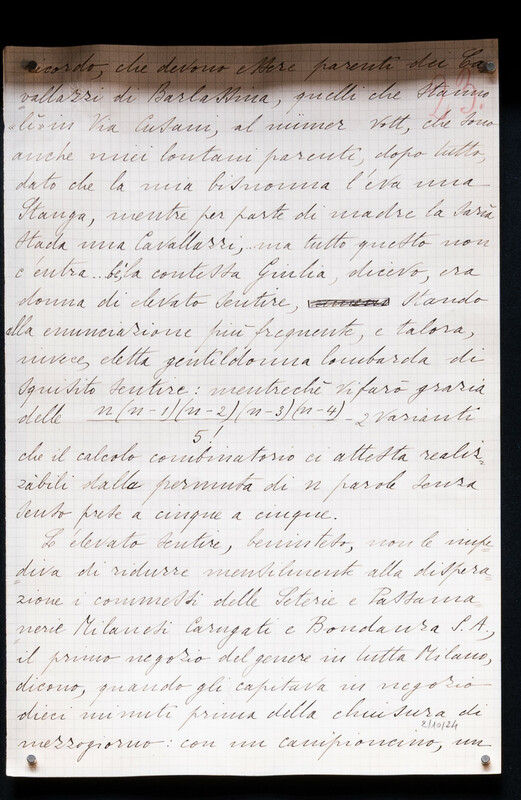 ricordo, che devono essere parenti dei Ca
vallazzi di Barlassina, quelli che stanno
alè in Via Cusani, al nümer vott, che sono
anche miei lontani parenti, dopo tutto,
dato che la mia bisnonna l'éva una
Stanga, mentre per parte di madre la saria
stada una Cavallazzi,.. ma tutto questo non
c'entra.. bè! la contessa Giulia, dicevo, era
donna di elevato sentire, stando
alla enunciazione più frequente, e talora,
invece, eletta gentildonna lombarda di
squisito sentire: mentrechè vi farò grazia
delle n(n-1)(n-2)(n-3)(n-4) - 2 varianti
5!
che il calcolo combinatorio ci attesta realiz=
zàbili dalla permuta di n parole senza
senso prese a cinque a cinque.
L'elevato sentire, beninteso, non le impe=
diva di ridurre mensilmente alla dispera=
zione i commessi delle Seterie e Passama
nerie Milanesi Carugati e Bondanza S.A.,
il primo negozio del genere in tutta Milano,
dicono, quando gli capitava in negozio
dieci minuti prima della chiusura di
mezzogiorno: con un campioncino, un
2/10/24